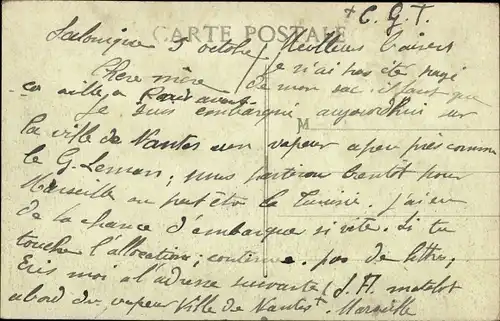 + C. G. T.
CARTE POSTALE
Salonique 5 octobre
Meilleurs baisers
Chere mère
je n'ai pas été payé
de mon sac. il faut que
ça aille a Paris avant
Je suis embarqué aujourd'hui sur
M
la ville de Nantes un vapeur a peu près comme
le G. Leman; nous partirons bientôt pour
Marseille ou peut être la Tunisie. j'ai eu
de la chance d'embarquer si vite. Si tu
touche l'allocation; continue. pas de lettre;
Ecris moi a l'adresse suivante (J. M. matelot
a bord du vapeur Ville de Nantes + Marseille